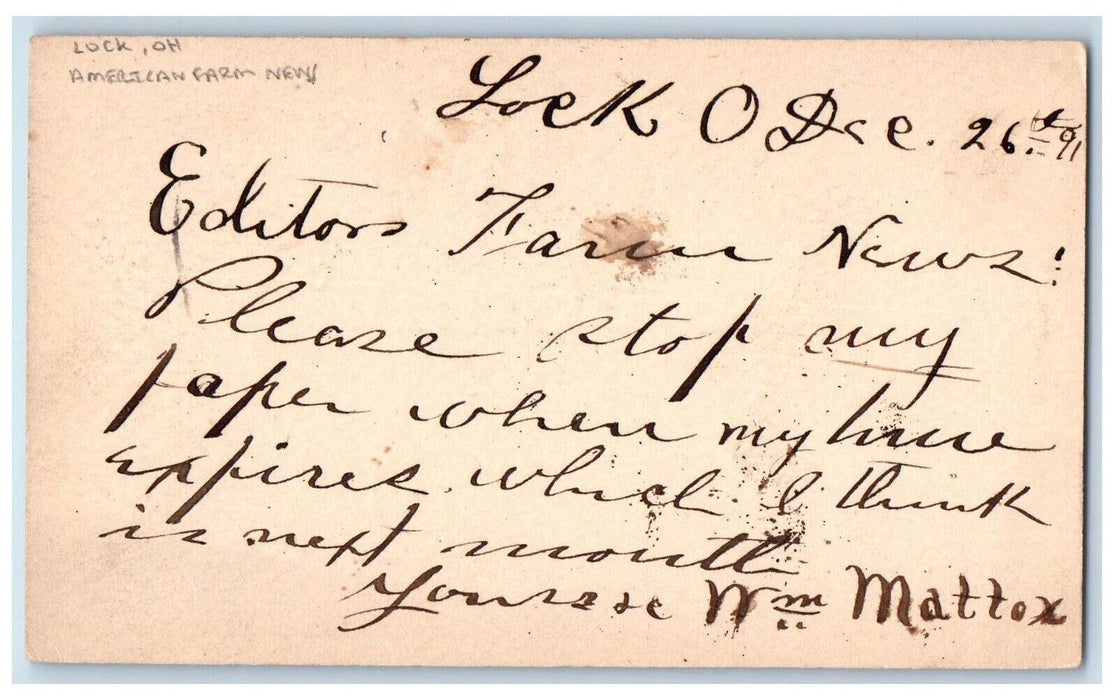 LOCK, OH
AMERICAN FARM NEWS
Lock O Dec. 26th 91
Editors Farm News!
Please stop my
paper when my time
expires, which I think
is next month
Yours &c Wm Mattox